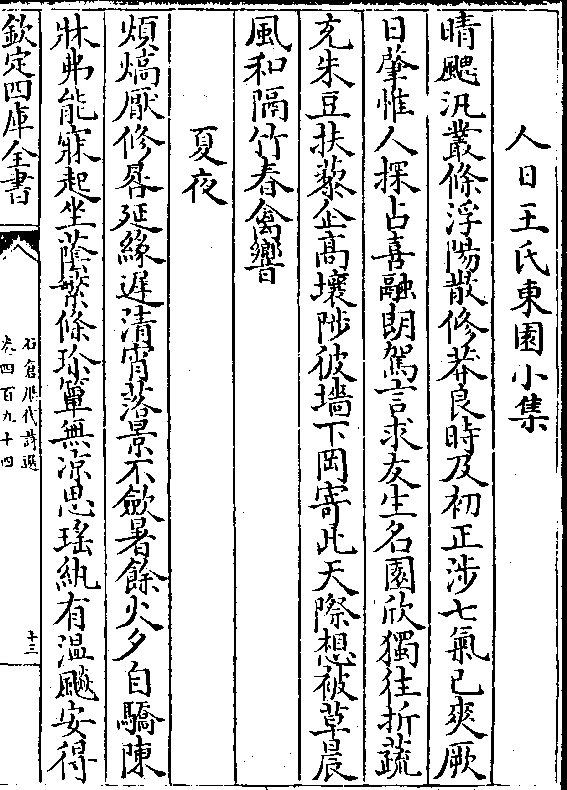 人日王氏東園小集
晴颸汎叢條浮陽散修莽良時及初正涉七氣已爽厥
日肇惟人探占喜融朗駕言求友生名園欣獨往折蔬
充朱豆扶藜企高壤陟彼墻下岡寄此天際想被草晨
風和隔竹春禽響
夏夜
煩熇厭修晷延緣遲清宵落景不斂暑餘火夕自驕陳
牀弗能寐起坐蔭繁條珍簟無凉思瑤紈有温飇安得
欽定四庫全書
石倉歷代詩選
卷四百九十四
十三